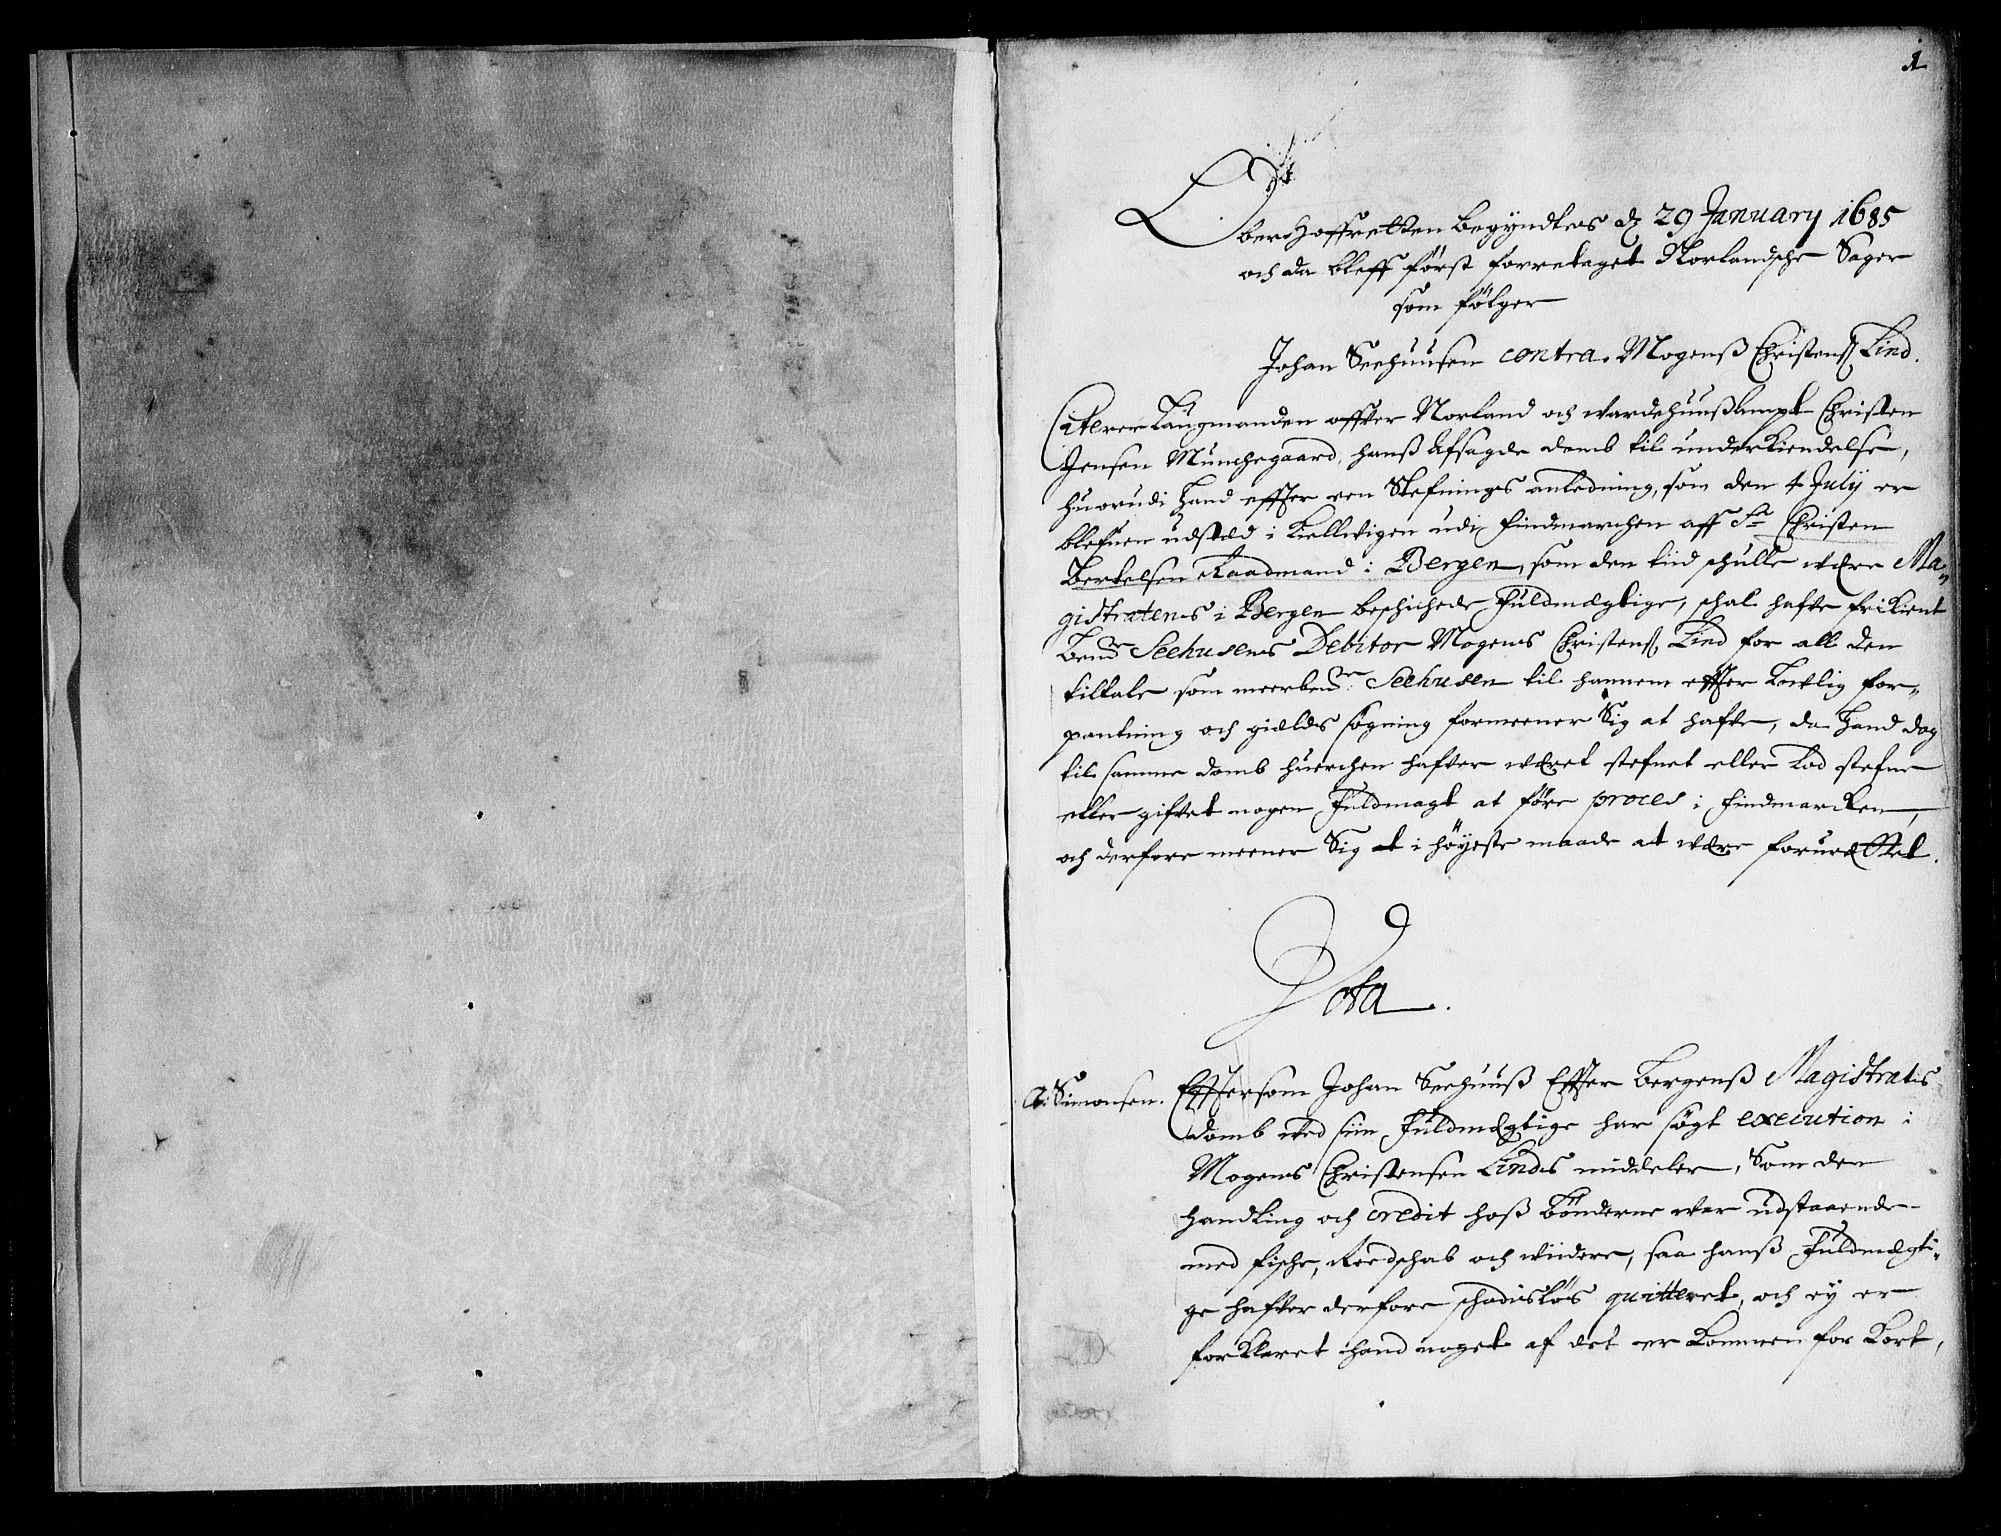 1
Oberhoffretten begyndtes d 29 January 1685
och da bleff først foretaget Norlandsche Sager
som følger
Johan Seehuusen contra Mogenß Christenß Lind.
Citerer Laugmanden offver Norland och Wardehuußlampt Christen
Jensen Munchegaard, hanß Afsagde domb til underkiendelse,
huorudi Hand effter een Stefnings anledning, som den 4 July er
blefuen udsted i Kielluigen udi Findmarchen aff Sr Christen
Bertelsen Raadmand i Bergen, som den tiid schulle were Ma-
gistratens i Bergen beschichede Fuldmegtige, schal hafve frikient
bemr Seehusens Debitor Mogens Christenß Lind for all den
tiltale som meerbemr Seehusen til hannem effter Lovlig for-
pantning och gields søgning formeener Sig at hafve, da Hand dog
til samme domb huerchen hafver veret stefnet eller Lod stefne
eller gifvet nogen Fuldmagt at føre proces i Findmarcken,
och derfore meener Sig i høyeste maade at were forurettet.
Vota.
A: Simonsen.
Efftersom Johan Seehuuß Effter Bergenß Magistrats
domb ved siin Fuldmegtige har søgt execution i
Mogens Christensen Linds middeler, Som den
handling och credit hoß bønderne war udstaaende
med fische, Reedschab och wiidere, saa hanß Fuldmegti-
ge hafver derfore schadisløs quitteret, och ey er
forklaret hand noget af det er kommen for kort,